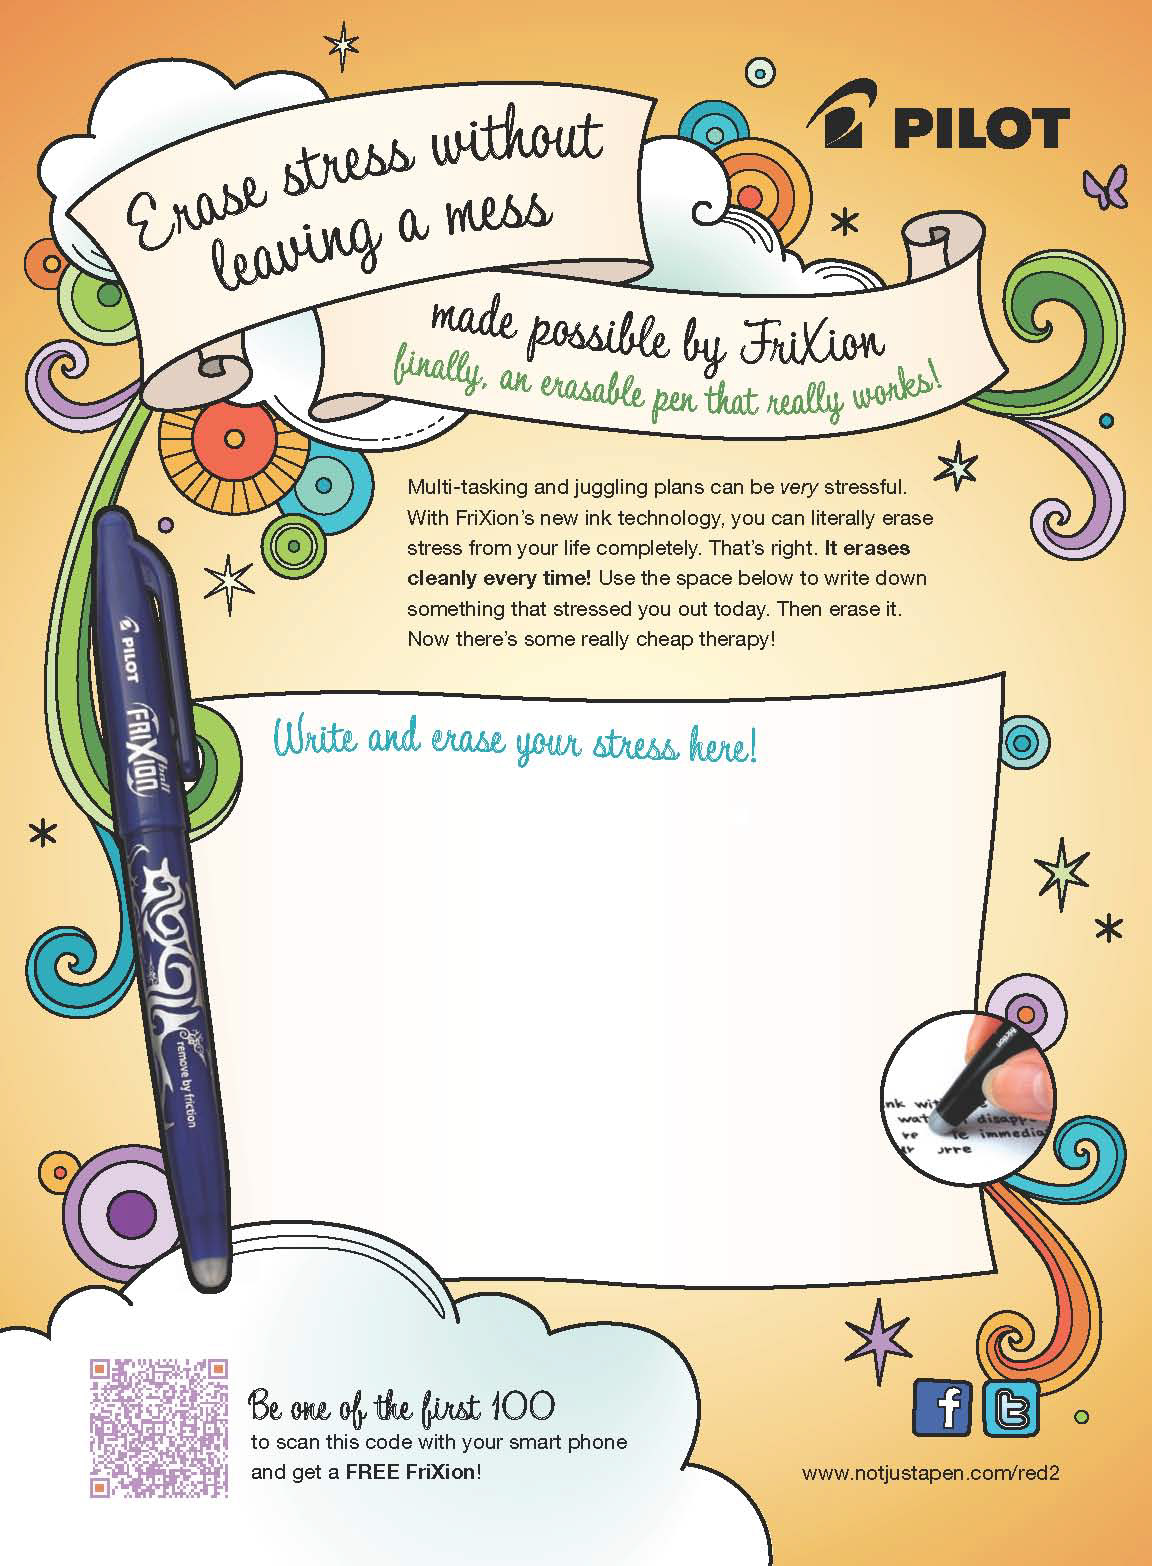 PILOT
Erase stress without
leaving a mess
made possible by FriXion
finally, an erasable pen that really works!
Multi-tasking and juggling plans can be very stressful.
With FriXion's new ink technology, you can literally erase
stress from your life completely. That's right. It erases
cleanly every time! Use the space below to write down
something that stressed you out today. Then erase it.
Now there's some really cheap therapy!
PILOT
FRIXion ball
remove by friction
Write and erase your stress here!
friction
nk wit
wat disapp
re te immedia
urre
Be one of the first 100
to scan this code with your smart phone
and get a FREE FriXion!
f
t
www.notjustapen.com/red2